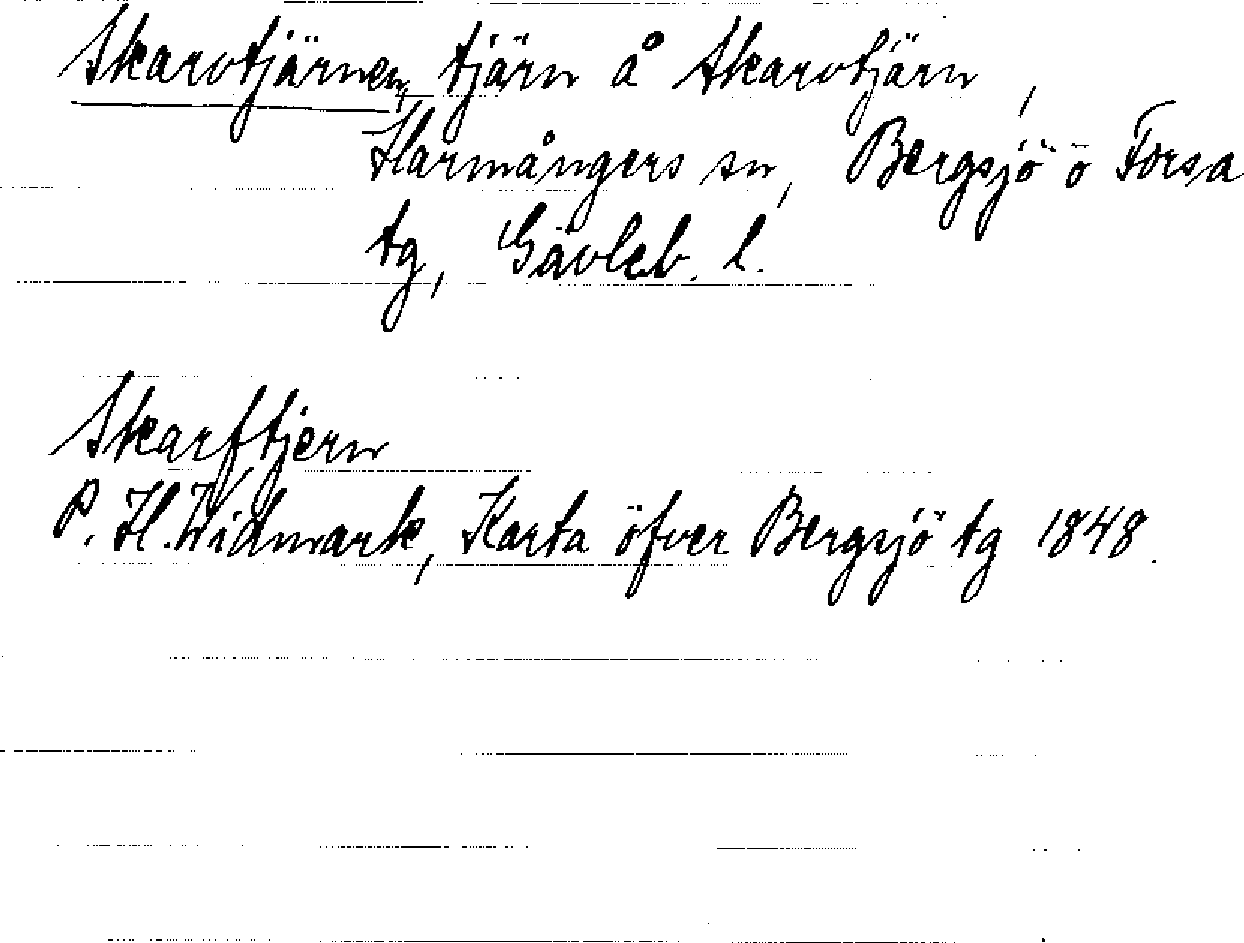 Skarvtjärnen, tjärn å Skarvtjärn,
Harmångers sn, Bergsjö o Forsa
tg, Gävleb. l.
Skarftjern
P. H. Widmark, Karta öfver Bergsjö tg 1848.